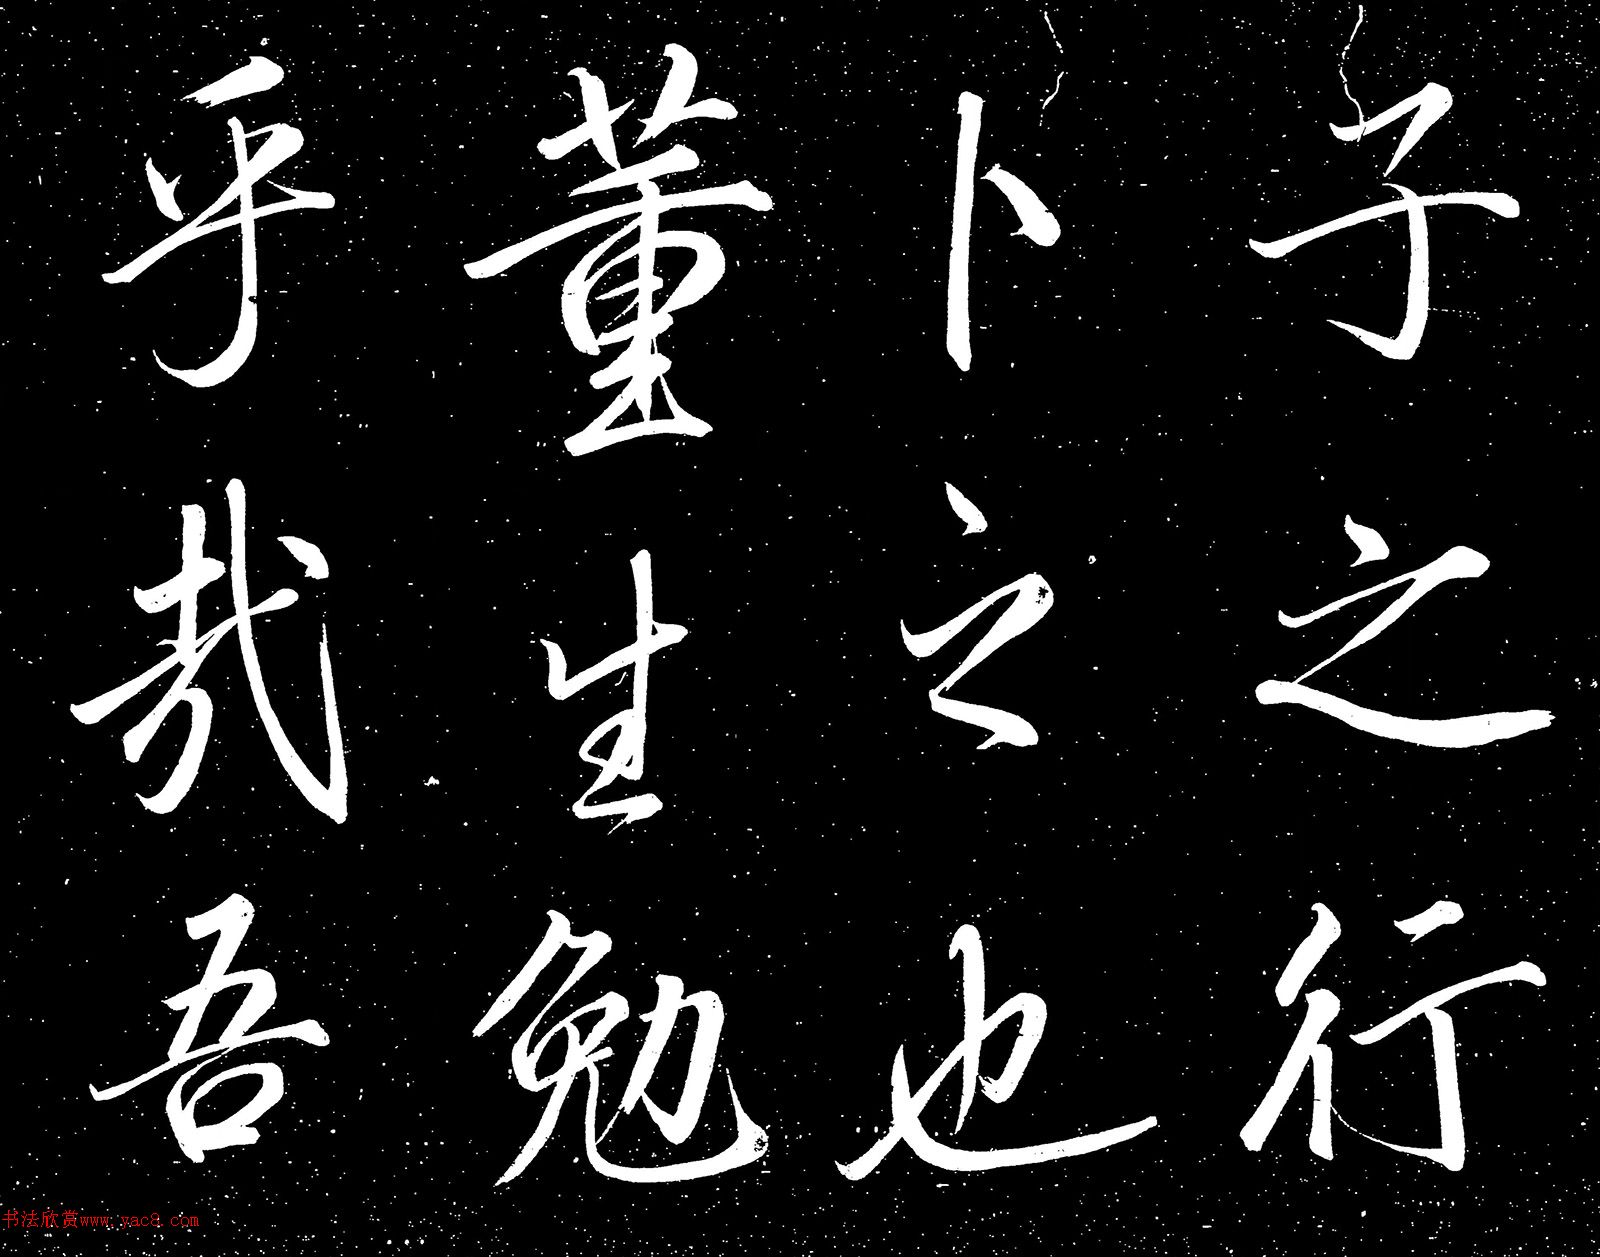 子之行
卜之也
董生勉
乎哉吾
书法欣赏www.yac8.com